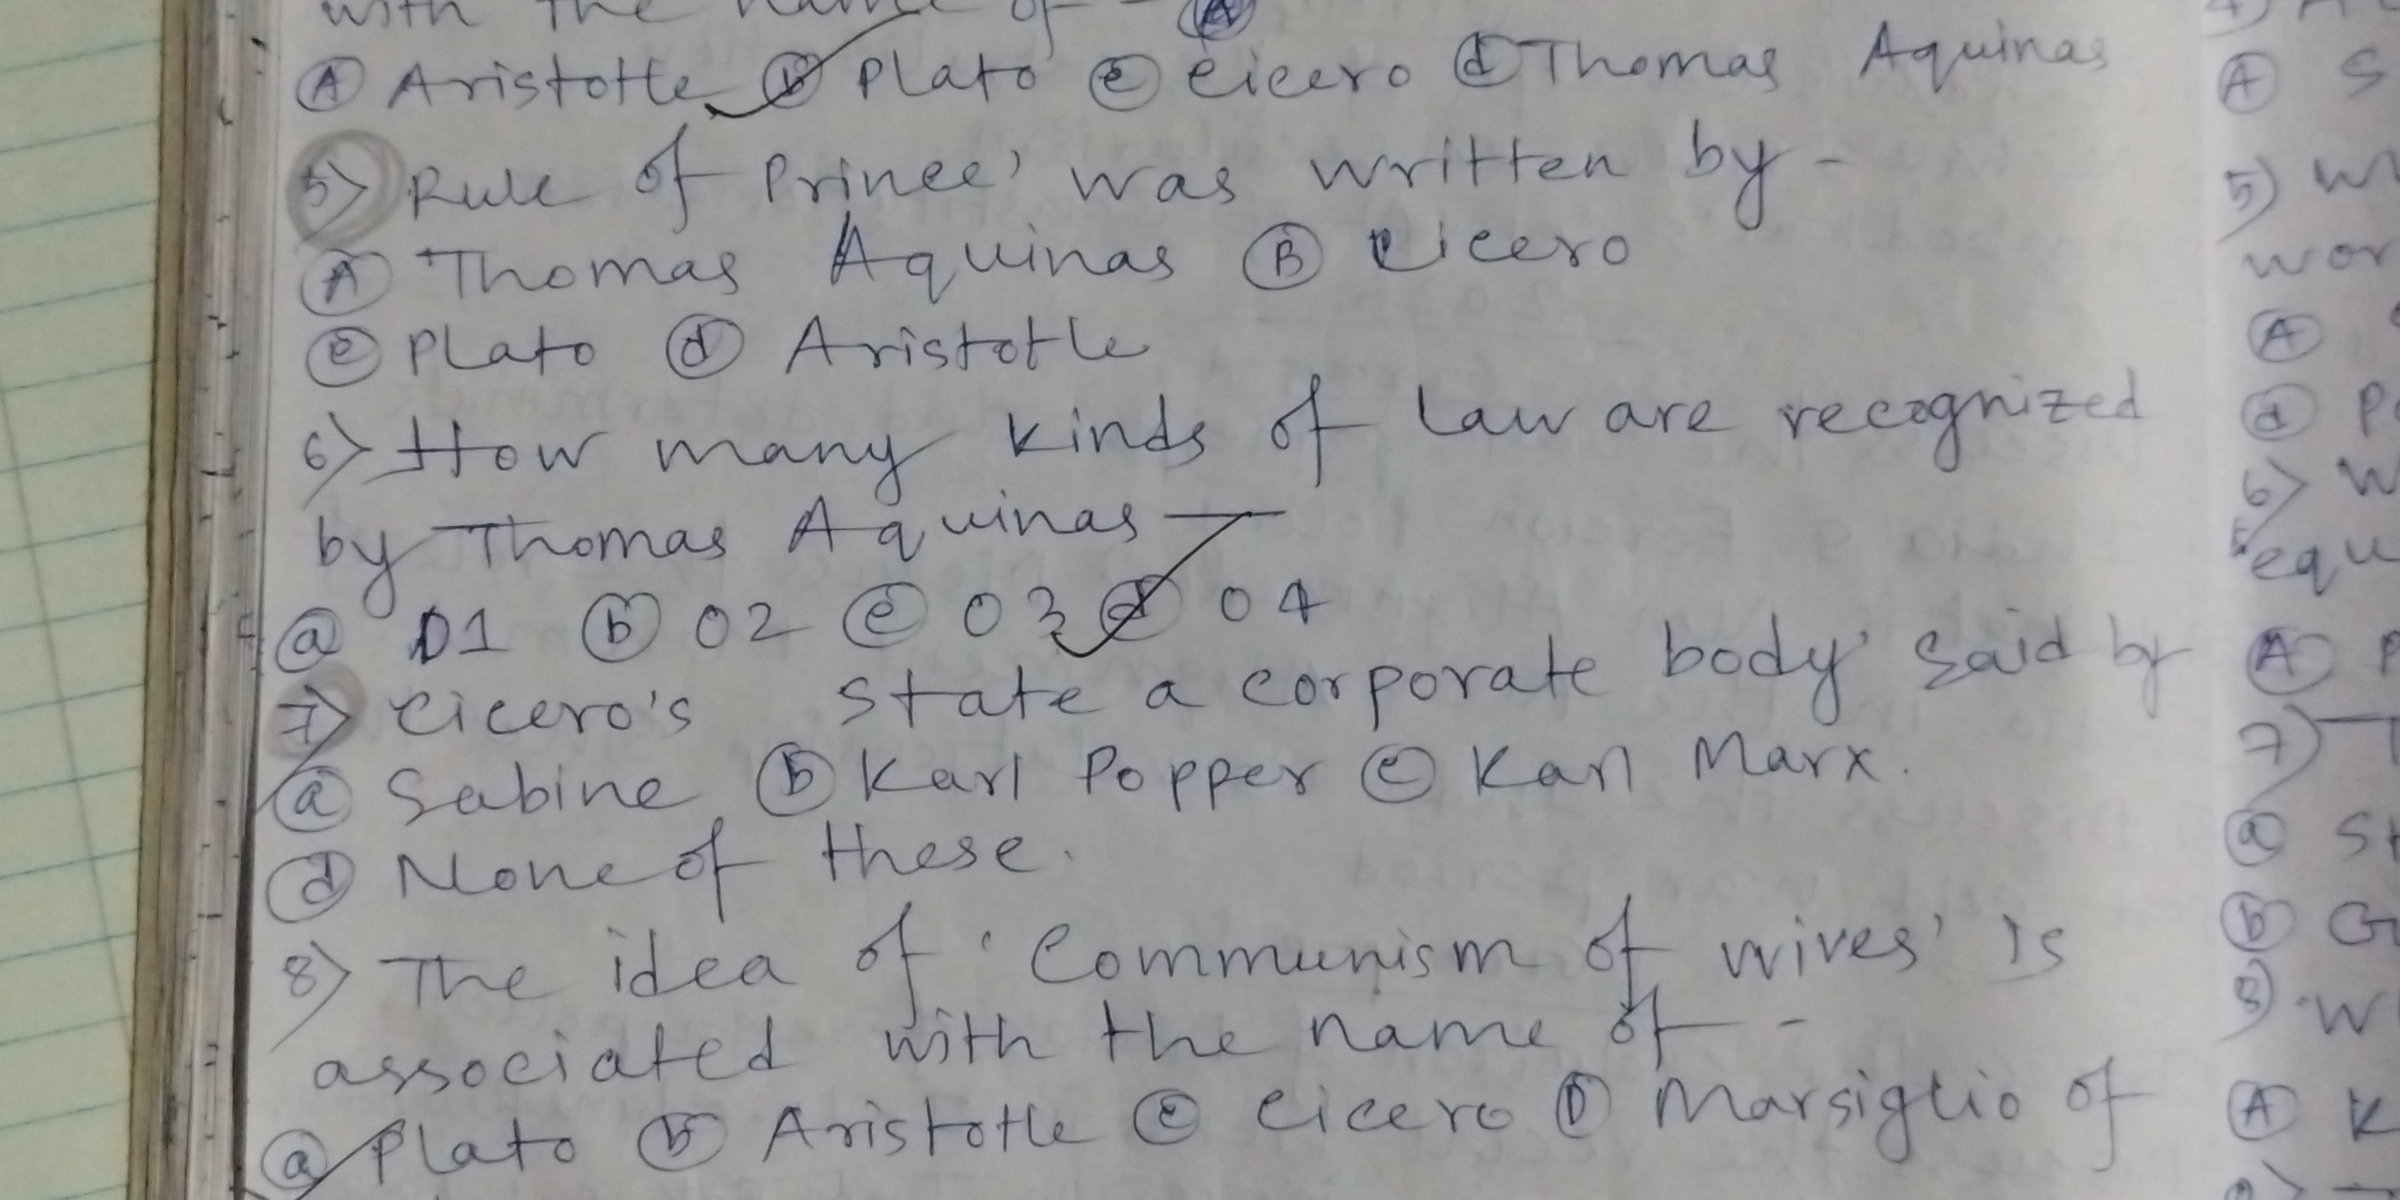 with the name of - (A)
(A) Aristotle (b) Plato (c) Cicero (d) Thomas Aquinas
5) Rule of Prince' was written by -
(A) Thomas Aquinas (B) Cicero
(c) Plato (d) Aristotle
6) How many kinds of law are recognized
by Thomas Aquinas —
(a) 01 (b) 02 (c) 03 (d) 04
7) Cicero's state a corporate body' said by
(a) Sabine (b) Karl Popper (c) Karl Marx.
(d) None of these.
8) The idea of 'Communism of wives' is
associated with the name of -
(a) Plato (b) Aristotle (c) Cicero (D) Marsiglio of
(A) S
5) W
wor
(A)
(d) P
6) W
equ
(A) P
7) T
(a) St
(b) G
8) W
(A) K